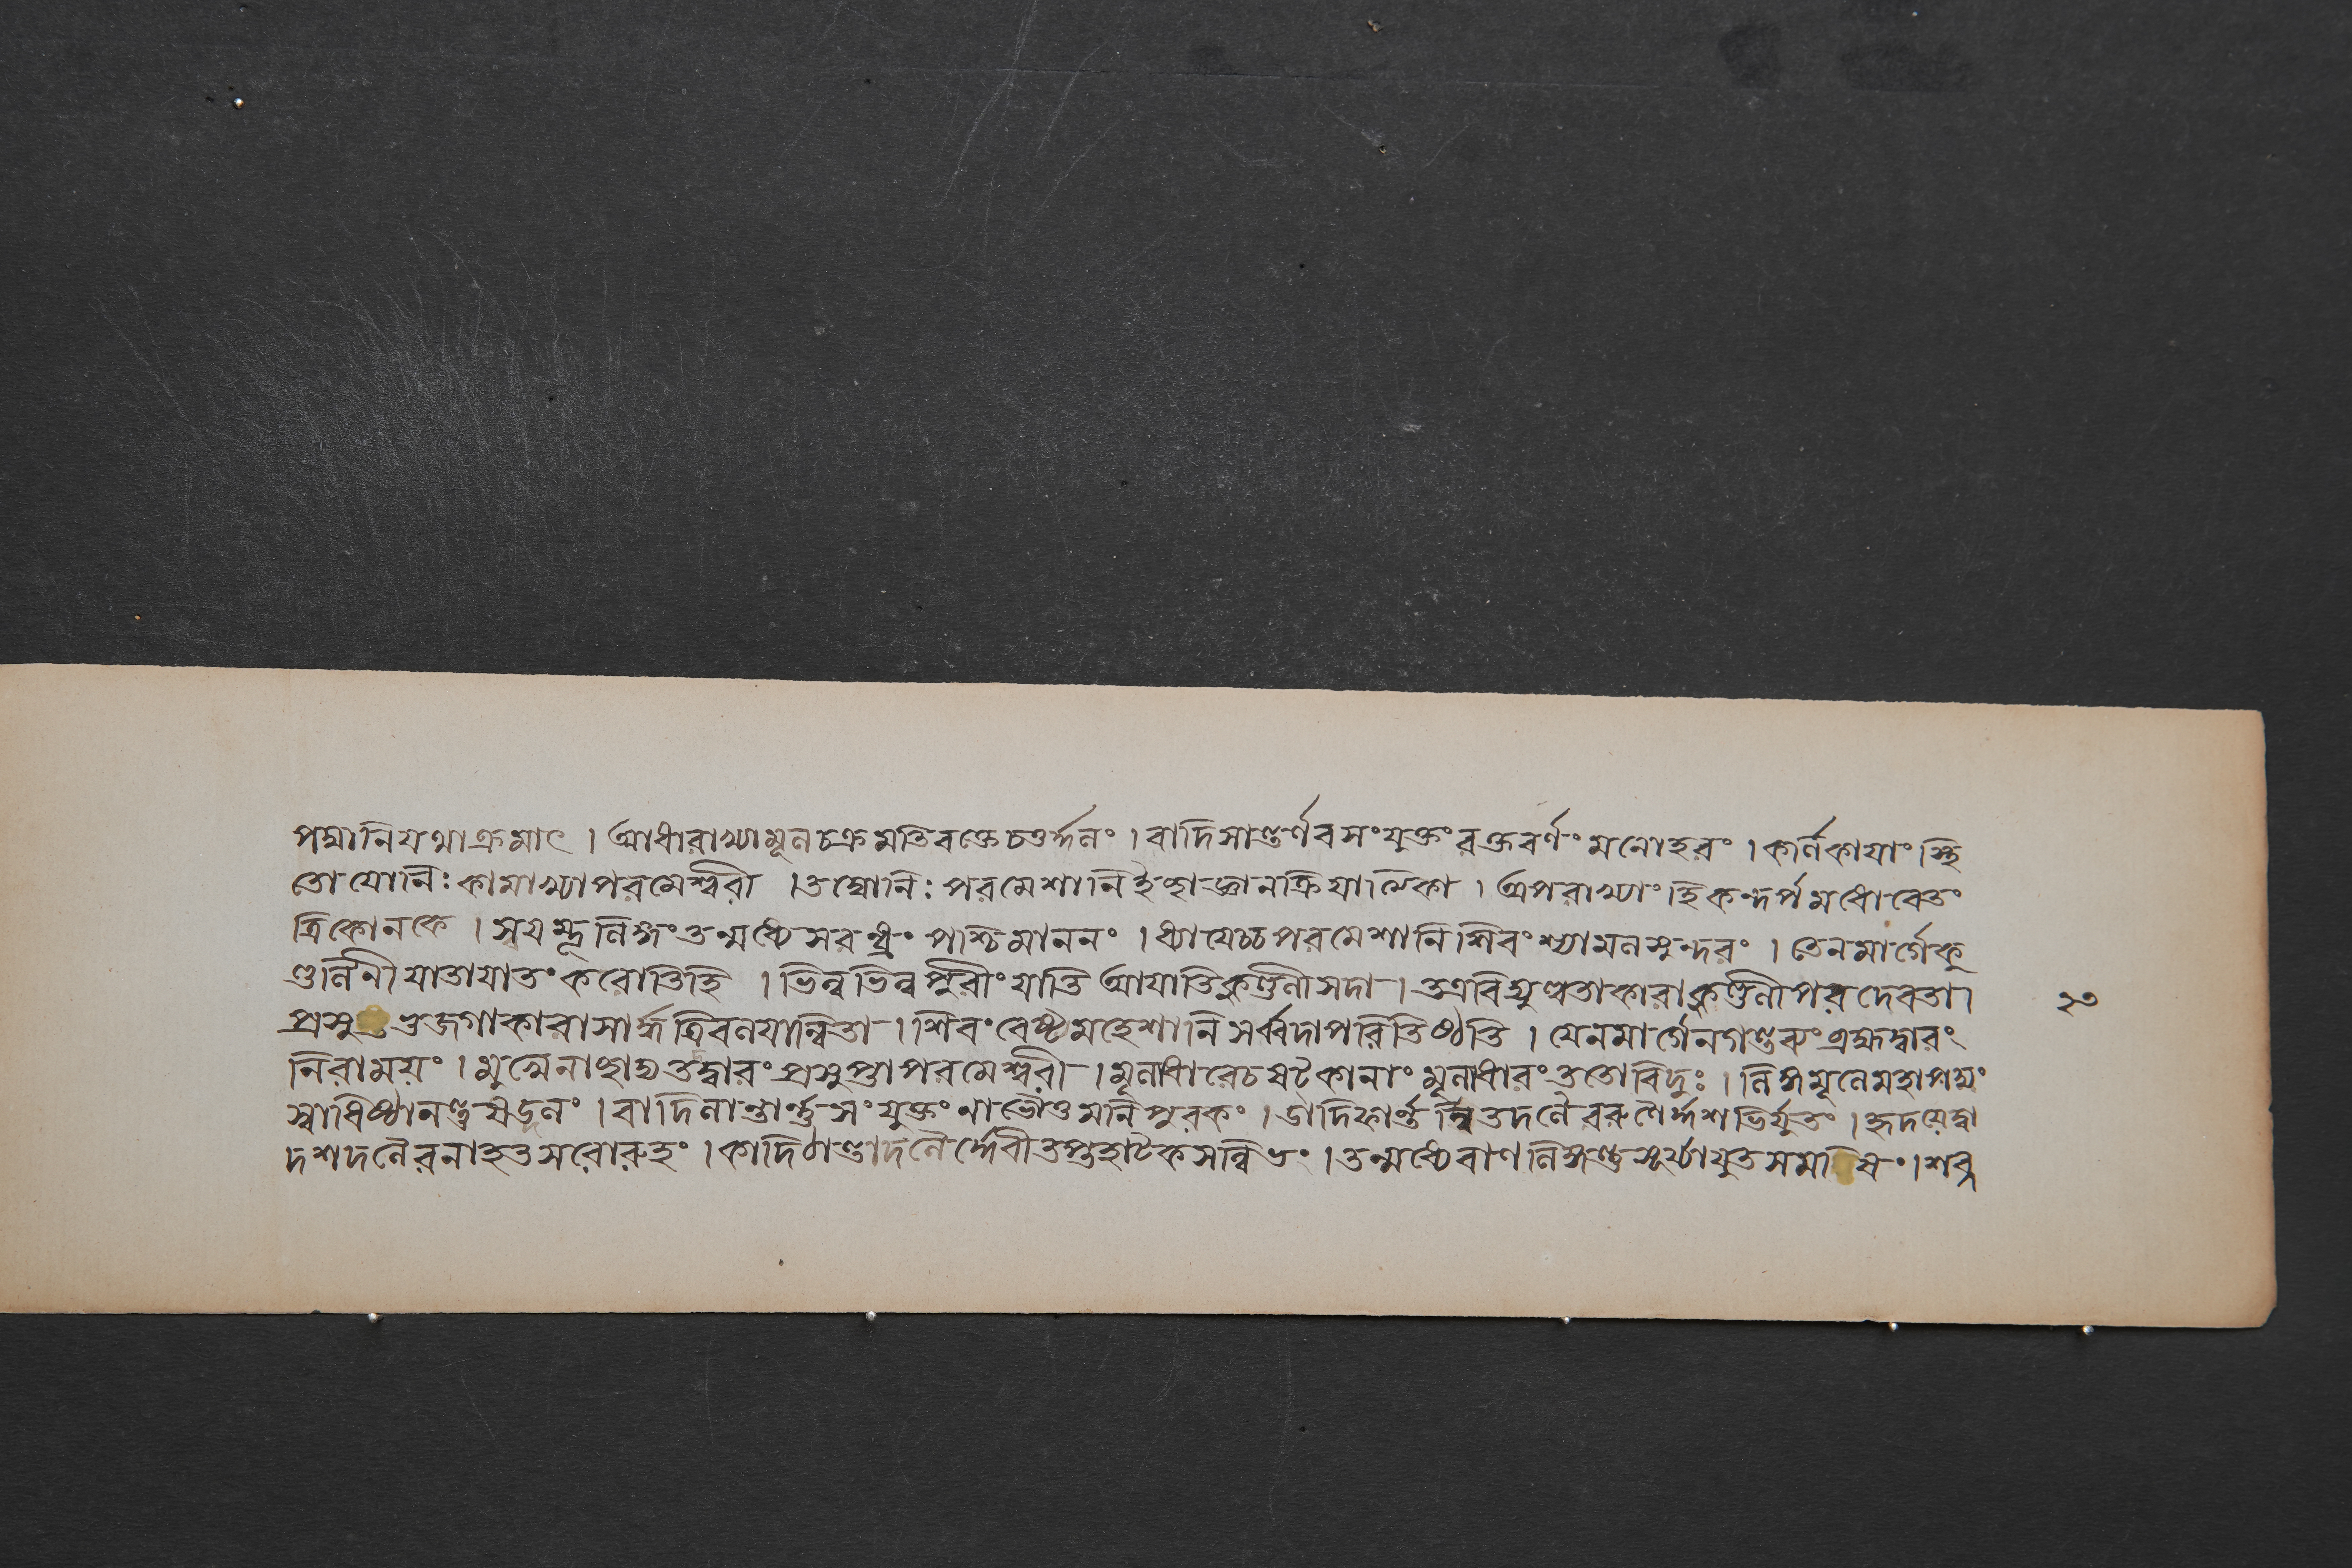 পদ্মানি যথাক্রমাৎ । আধারাখ্যামূলচক্রমতিরক্তেচতুর্দ্দলং । বাদিসান্তর্ণবসংযুক্তং রক্তবর্ণং মনোহরং । কর্ণিকাযাং স্থি
তো যোনিঃ কামাখ্যাপরমেশ্বরী । তদ্যোনিঃ পরমেশানি ইচ্ছাজ্ঞানক্রিযাত্মিকা । অপরাখ্যাং হি কন্দর্পমধোবেতং
ত্রিকোনকে । স্বয়ম্ভূলিঙ্গং তন্মধ্যে সরন্ধ্রং পশ্চিমাননং । ধ্যাযেচ্চ পরমেশানি শিবং শ্যামলসুন্দরং । তেনমার্গে কু
ণ্ডলিনী যাতাযাতং করোতি হি । ভিন্নভিন্নপুরীং যাতি আযাতি কুণ্ডলী সদা । তত্রবিদ্যুল্লতাকারা কুণ্ডলী পরদেবতা ।
প্রসুপ্তভুজগাকারাসার্দ্ধত্রিবলযান্বিতা । শিবং বেষ্ট্য মহেশানি সর্ব্বদা পরিতিষ্ঠতি । যেন মার্গেন গন্তব্যং ব্রহ্মদ্বারং
নিরাময়ং । মুখেনাচ্ছাদ্য তদ্দ্বারং প্রসুপ্তাপরমেশ্বরী । মূলাধারেচ ষটকানাং মূলাধারং ততো বিদুঃ । লিঙ্গমূলে মহাপদ্মং
স্বাধিষ্ঠানন্তু ষড্দলং । বাদিলান্তার্ন্তু সংযুক্তং নাভৌতু মনিপুরকং । ডাদিফার্ন্ত তদলৈ র্দ্দশভির্যুতং । হৃদযেদ্বা
দশদলৈরনাহতসরোরুহং । কাদিঠান্তাদলৈর্দ্দেবী তপ্তহাটকসন্নিভং । তন্মধ্যে বাণলিঙ্গন্তু সূর্য্যাযুতসম ষং । শব্দ
২৩